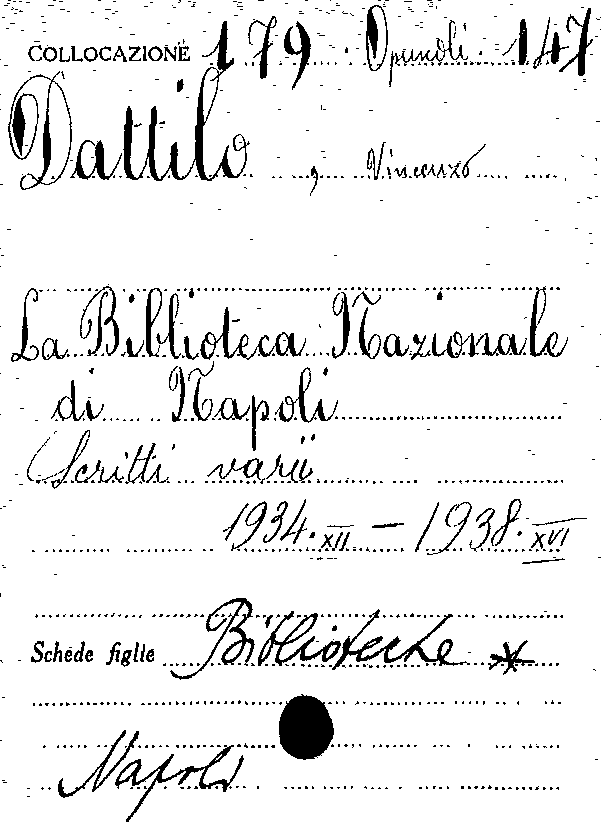 COLLOCAZIONE 179. Opuscoli. 147
Dattilo, Vincenzo
La Biblioteca Nazionale
di Napoli
Scritti varii
1934.XII - 1938.XVI
Schede figlie Biblioteche *
Napoli